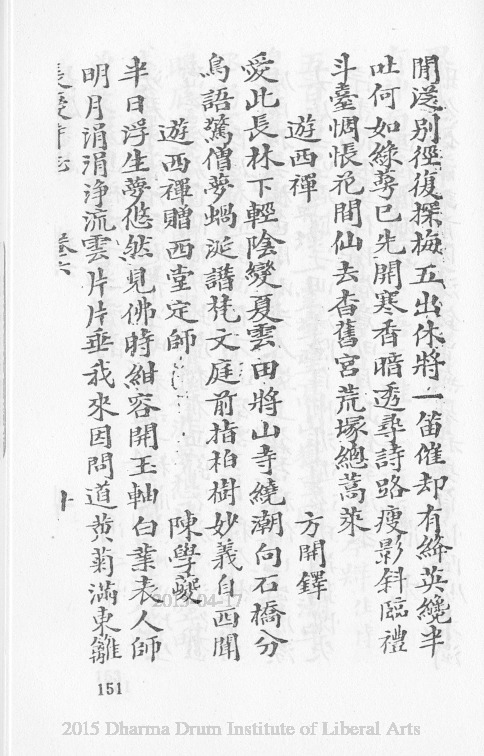 閒從別徑復探梅五出休將一笛催却有絳英纔半
吐何如綠蕚已先開寒香暗透尋詩路瘦影斜臨禮
斗臺惆悵花間仙去杳舊宮荒塚總蒿萊
遊西禪 方開鐸
愛此長林下輕陰變夏雲田將山寺繞潮向石橋分
鳥語驚僧夢蝸涎譜梵文庭前指柏樹妙義自西聞
遊西禪贈西堂定師 陳學夔
半日浮生夢悠然見佛時紺容開玉軸白業表人師
明月涓涓淨流雲片片垂我來因問道黃菊滿東籬
長慶寺志 卷六 十
151
2013-04-17
2015 Dharma Drum Institute of Liberal Arts